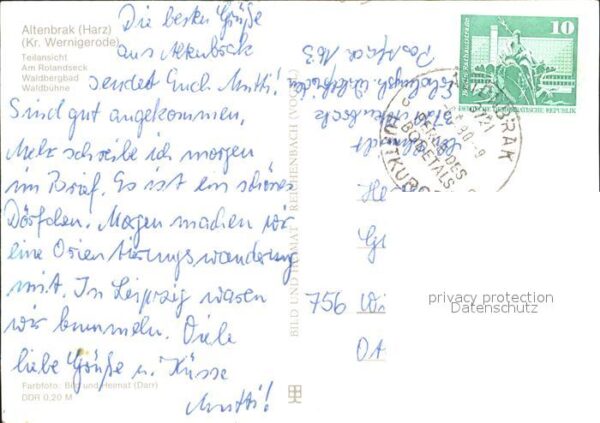 Altenbrak (Harz)
(Kr. Wernigerode)
Teilansicht
Am Rolandseck
Waldbergbad
Waldbühne
Die besten Grüße
aus Altenbrak
sendet Euch Mutti!
Sind gut angekommen,
Mehr schreibe ich morgen
im Brief. Es ist ein schönes
Dörfchen. Morgen machen wir
eine Orientierungswanderung
mit. In Leipzig waren
wir bummeln. Viele
liebe Grüße u. Küsse
Mutti!
Farbfoto: Bild und Heimat (Darr)
DDR 0,20 M
BILD UND HEIMAT REICHENBACH (VOGTL)
Postfach 163
3721 Altenbrak
10
DEUTSCHE DEMOKRATISCHE REPUBLIK
ALTENBRAK
3721
PERLE DES
BODETALS
He
Gl
756 Wi
OA
privacy protection
Datenschutz